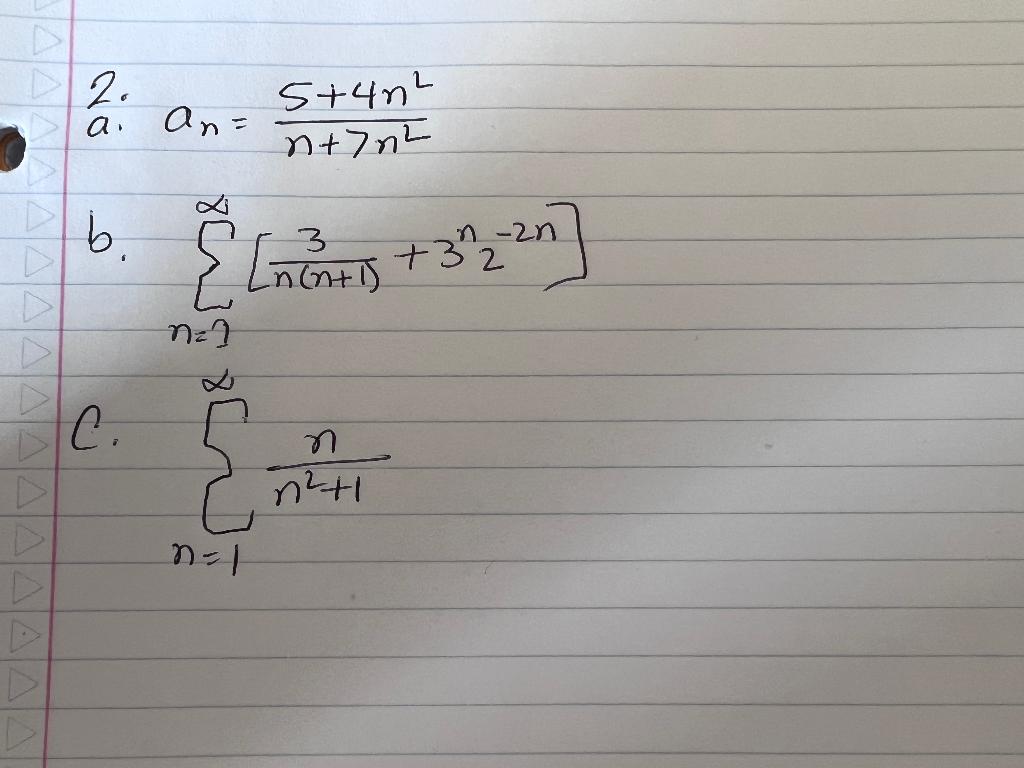 2.
a. aₙ = (5+4n²)/(n+7n²)
b. ∞
∑ [3/(n(n+1)) + 3ⁿ2⁻²ⁿ]
n=1
c. ∞
∑ n/(n²+1)
n=1